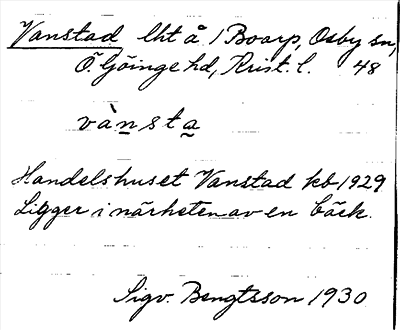 Vanstad lht å 1 Boarp, Osby sn,
Ö. Göinge hd, Krist. l. 48
vànsta
Handelshuset Vanstad kb 1929.
Ligger i närheten av en bäck.
Sigv. Bengtsson 1930